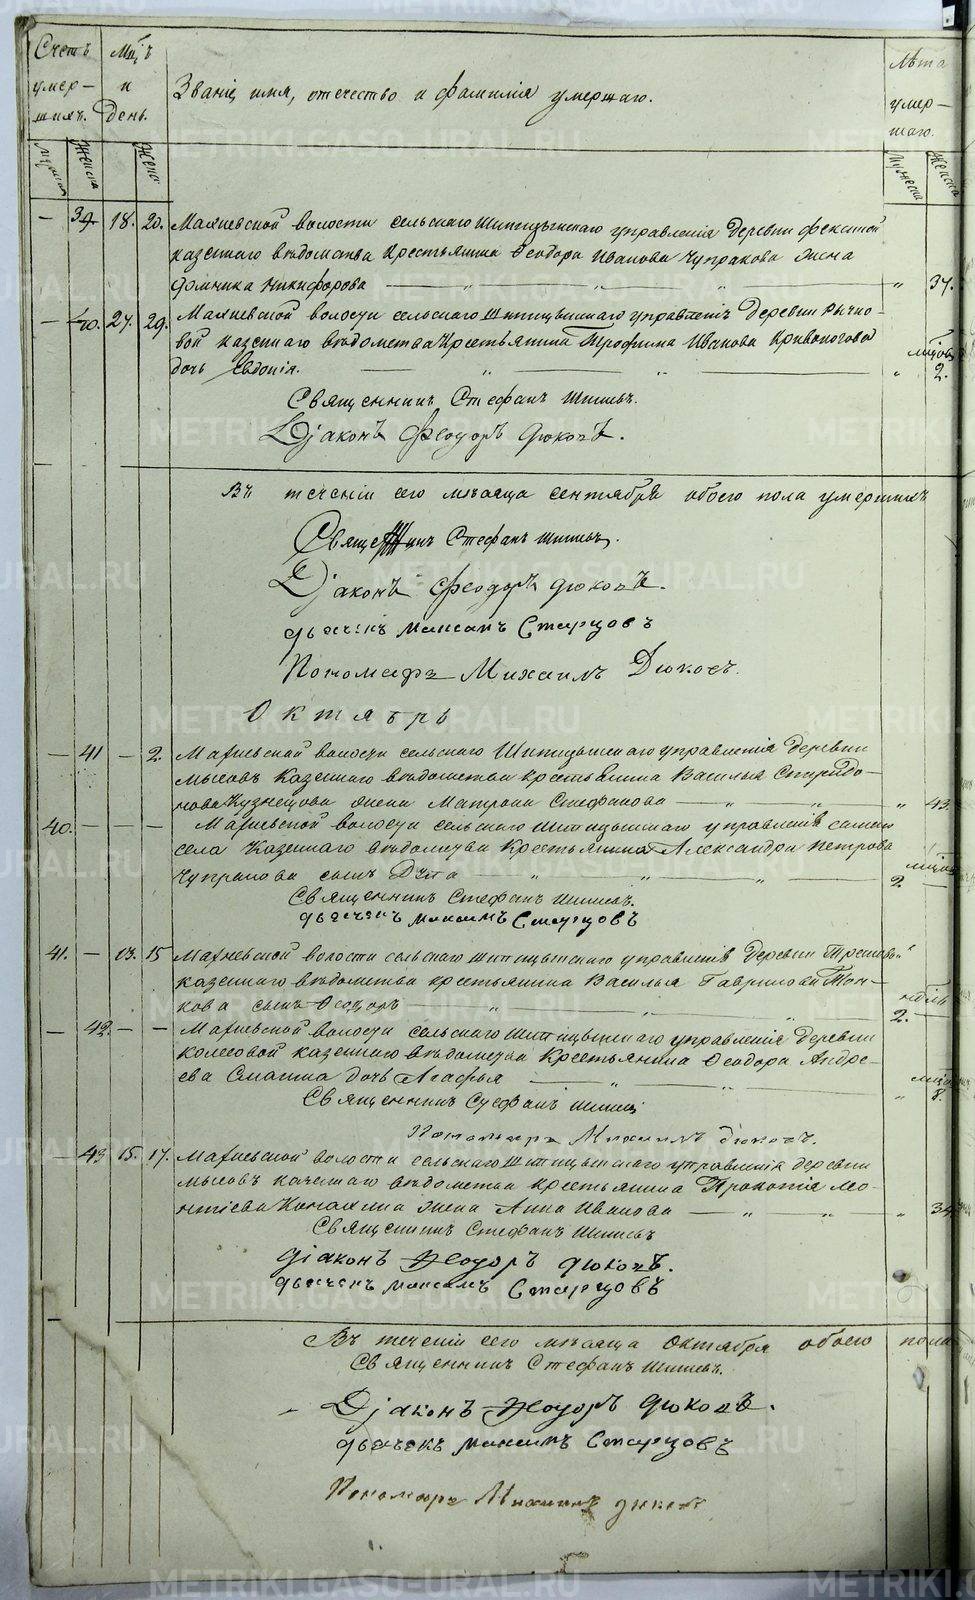 Счетъ умер- шихъ.
Мцъ и день.
Званіе имя, отечество и фамилія умершаго.
Лѣта умер- шаго.
Женска
Жена
Мужеска
Женска
— 39 18. 20. волости сельскаго управленія деревни
казеннаго вѣдомства крестьянина Ѳеодора Иванова Чупракова жена
Домника Никифорова — „ — „ — „ — „ 37.
— 40. 27. 29. волости сельскаго управленія деревни Рычко-
вой казеннаго вѣдомства Крестьянина Трофима Иванова Кривоногова
мцовъ
дочь Евдокія. — „ — „ — „ 2.
Священникъ Стефанъ Шишевъ.
Діаконъ Феодоръ Дюковъ.
Въ теченіи сего мѣсяца сентября обоего пола умершихъ
Священникъ Стефанъ Шишевъ.
Діаконъ Феодоръ Дюковъ.
дьячекъ Максимъ Старцовъ
Пономарь Михаилъ Дюковъ.
Октябрь
— 41 — 2. волости сельскаго управленія деревни
Мысовъ Казеннаго вѣдомства крестьянина Василья Спиридо-
нова Кузнецова жена Матрона Стефанова — „ — „ — „ 43.
40. — — — волости сельскаго управленія самаго
села Казеннаго вѣдомства Крестьянина Александра Петрова
Чупракова сынъ — „ — „ — „ — 2 —
Священникъ Стефанъ Шишевъ.
дьячекъ Максимъ Старцовъ
41. — 13. 15 волости сельскаго управленія деревни
казеннаго вѣдомства крестьянина Василья Гаврилова Тон-
недѣль
кова сынъ Ѳеодоръ — „ — „ — „ — 2. —
— 42. — — волости сельскаго управленія деревни
Колесовой казеннаго вѣдомства Крестьянина Ѳеодора Андре-
ева дочь Агафья — „ — „ — „ 8.
Священникъ Стефанъ Шишевъ
Пономарь Михаилъ Дюковъ.
— 43 15. 17. волости сельскаго управленія деревни
Мысовъ казеннаго вѣдомства крестьянина Прокопія Лео-
нтіева жена Анна Иванова — „ — „ — „ 34
Священникъ Стефанъ Шишевъ
Діаконъ Феодоръ Дюковъ.
дьячекъ Максимъ Старцовъ
Въ теченіи сего мѣсяца Октября обоего пола
Священникъ Стефанъ Шишевъ.
Діаконъ Феодоръ Дюковъ.
дьячекъ Максимъ Старцовъ
Пономарь Михаилъ Дюковъ
METRIKI.GASO-URAL.RU